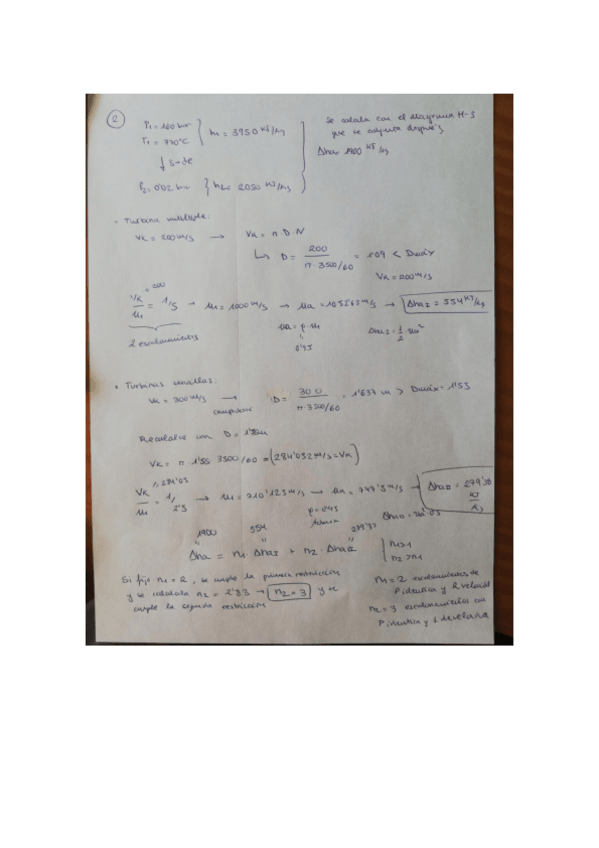 2
P1 = 160 bar
T1 = 770°C
h1 = 3950 KJ/kg
↓ s=cte
P2 = 0'02 bar } h2s = 2050 KJ/kg
Se calcula con el diagrama H-S
que se adjunta después
Δha = 1900 KJ/kg
• Turbina múltiple:
Vk = 200 m/s → Vk = π·D·N
↳ D = 200 / π·3500/60 = 1'09 < Dmáx
Vk = 200 m/s
Vk/u1 = 1/5 → u1 = 1000 m/s → ua = m/s → Δha I = 554 KJ/kg
= 200
2 escalonamientos
ua = φ·u1
0'95
Δha I = 1/2 ua²
• Turbinas sencillas:
Vk = 300 m/s → D = 300 / π·3500/60 = 1'637 m > Dmáx = 1'55
Recalculo con D = 1'55 m
Vk = π 1'55 3500/60 = (284'052 m/s = Vk)
Vk/u1 = 1/2'5 → u1 = 710'125 m/s → ua = 747'5 m/s → Δha II = 279'38 KJ/kg
φ = 0'95
1900 554 279'37
Δha = n1·Δha I + n2·Δha II
n1 > 1
n2 > n1
Si fijo n1 = 2, se cumple la primera restricción
y se calcula n2 = 2'83 → n2 = 3 y se
cumple la segunda restricción
n1 = 2 escalonamientos de
P identica y 2 velocid
n2 = 3 escalonamientos con
P identica y 1 de velocid